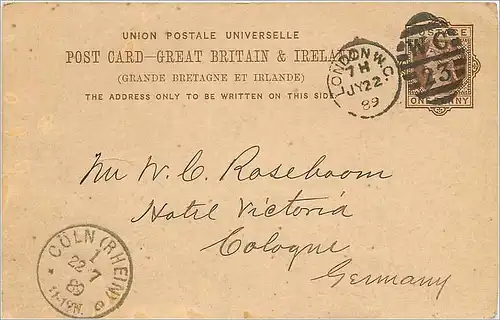 UNION POSTALE UNIVERSELLE
POST CARD—GREAT BRITAIN & IRELAND
(GRANDE BRETAGNE ET IRLANDE)
THE ADDRESS ONLY TO BE WRITTEN ON THIS SIDE
LONDON W.C.
7H
JY22
89
W.C.
23
POSTAGE
ONE PENNY
Mr W. C. Roseboom
Hotel Victoria
Cologne
Germany
CÖLN (RHEIN)
1
22 7
89
11-12N.